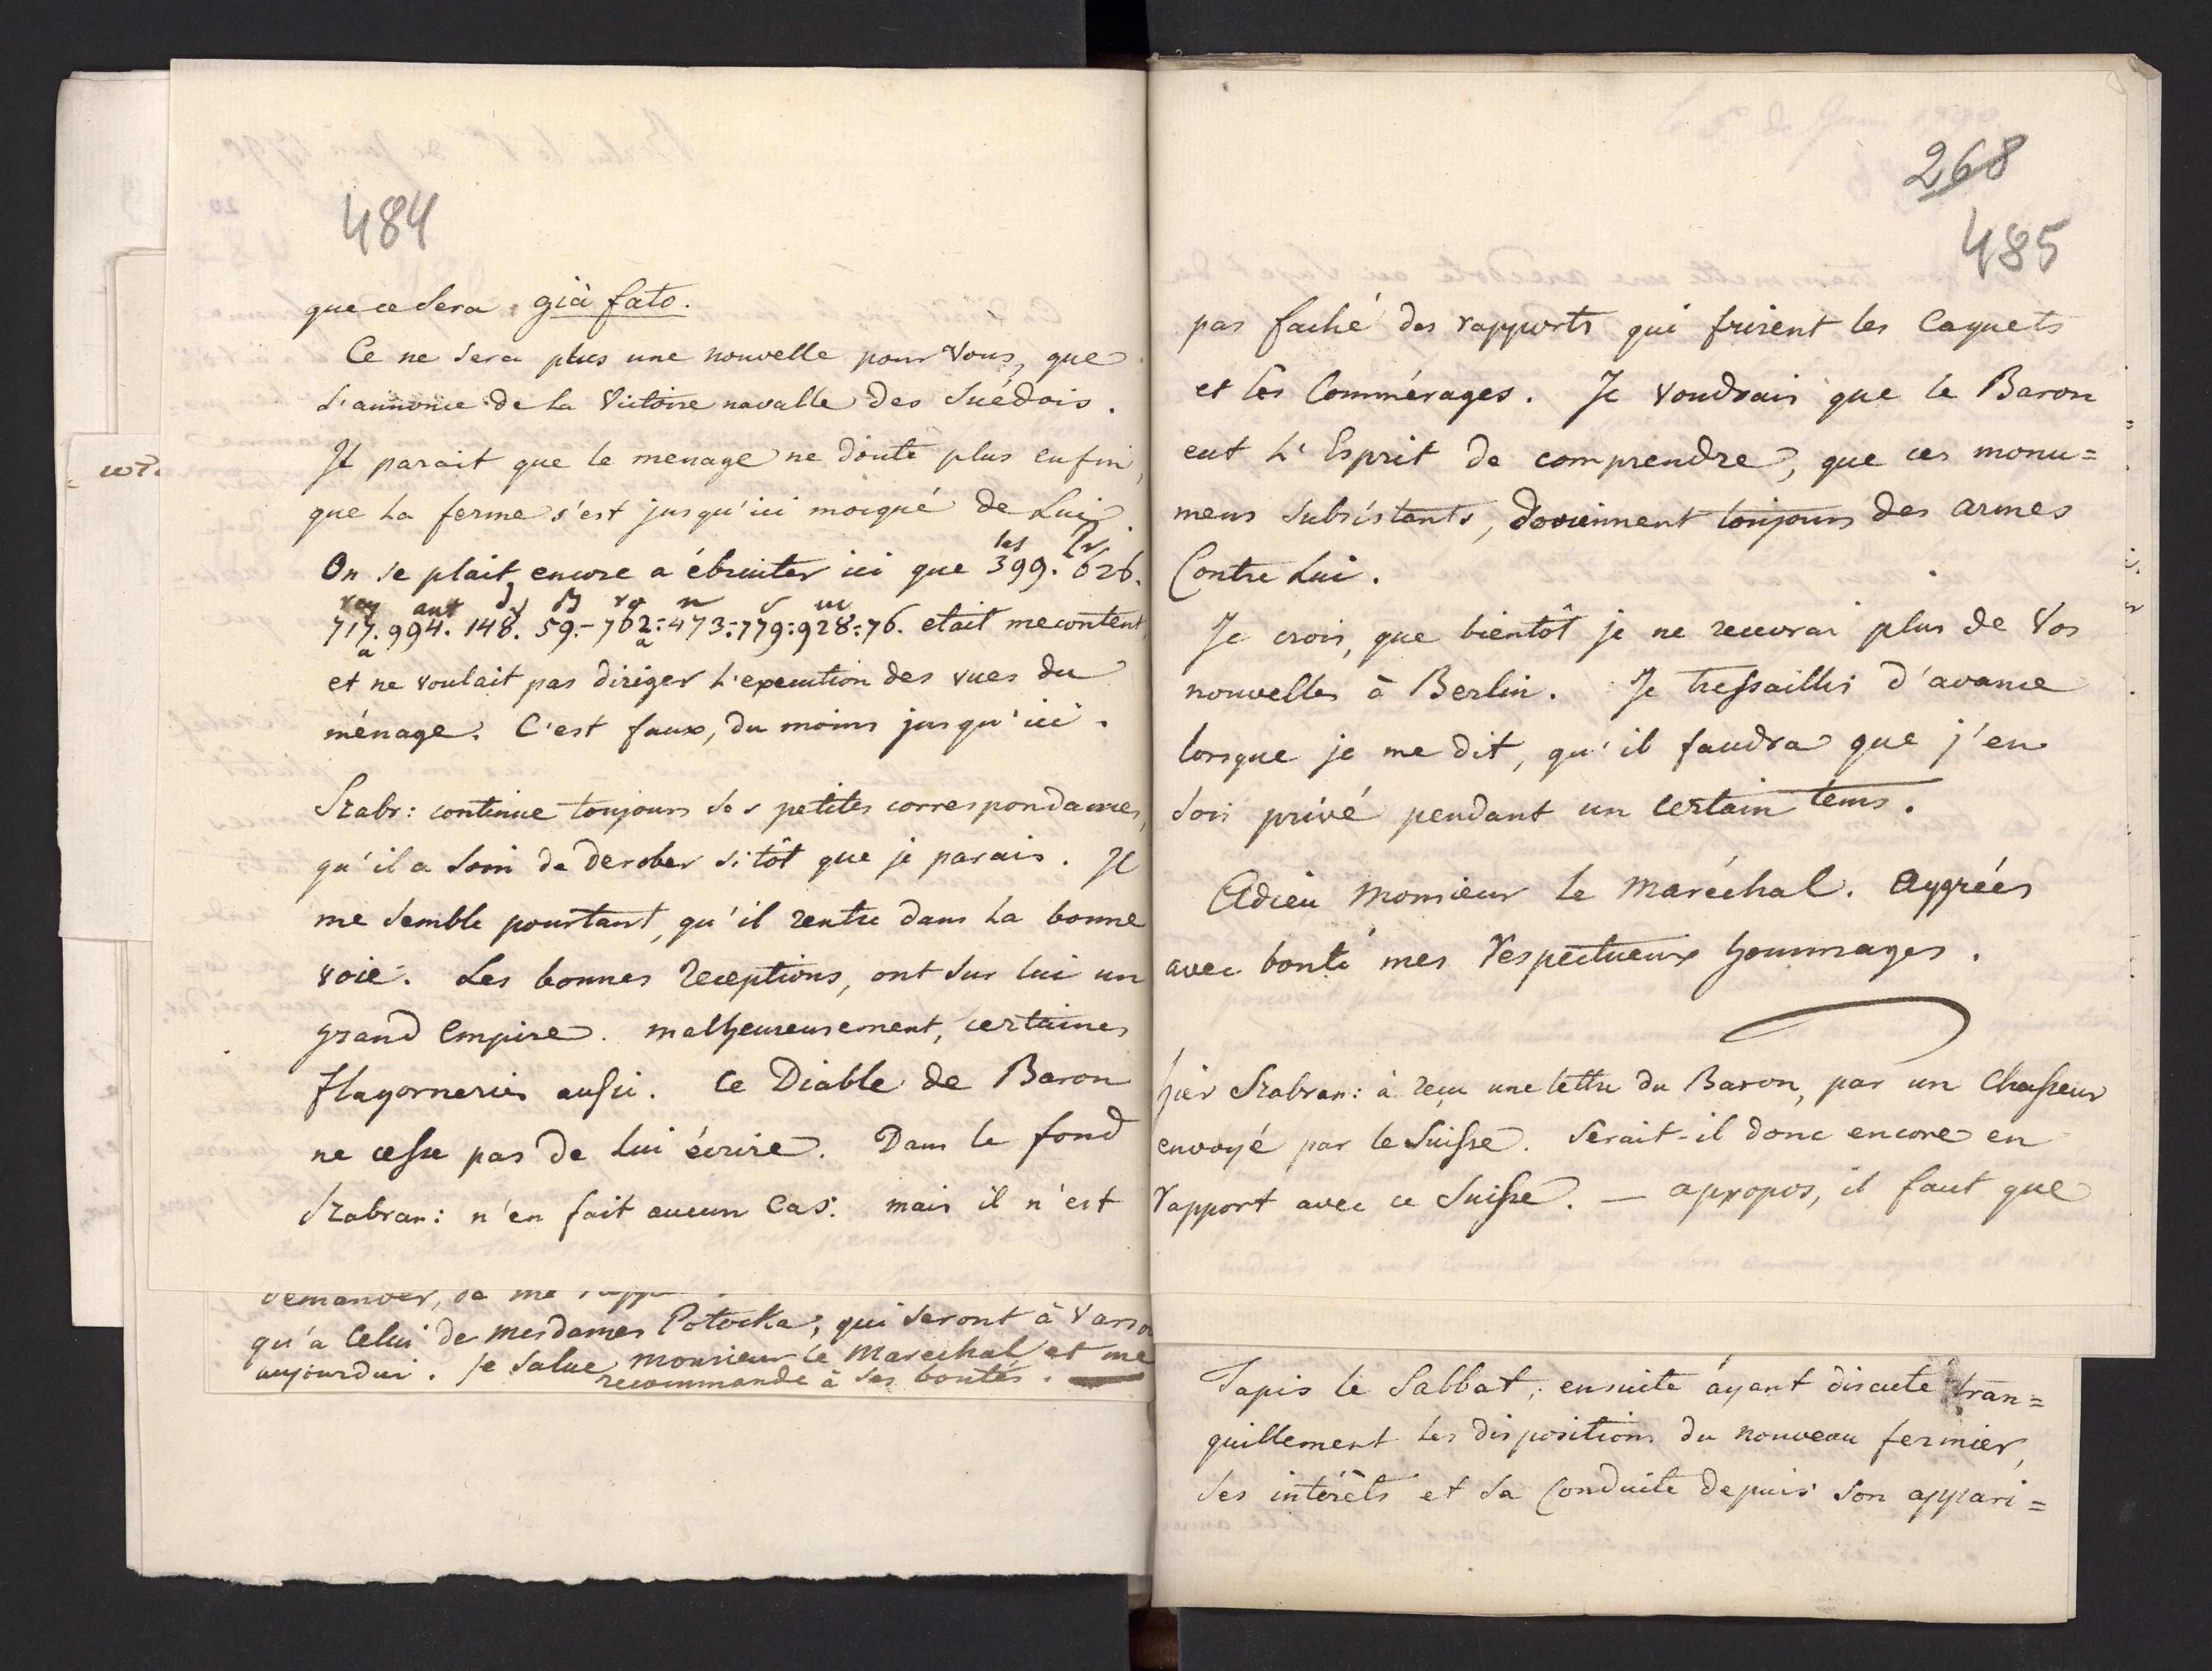 484
que ce sera già fato.
Ce ne sera plus une nouvelle pour Vous, que
l'annonce de la Victoire navalle des Suédois.
Il parait que le menage ne doute plus enfin,
que la ferme s'est jusqu'ici moqué de Lui.
On se plait encore a ébruiter ici que 399. 626.
les
717. 994. 148. 59.- 702:473:779:928:76. etait mecontent
et ne voulait pas diriger l'execution des vues du
ménage. C'est faux, du moins jusqu'ici.
Szabr: continue toujours ses petites correspondances,
qu'il a soin de derober sitôt que je parais. Il
me semble pourtant, qu'il rentre dans la bonne
voie. Les bonnes receptions, ont sur lui un
grand empire. malheureusement, certaines
flagorneries aussi. Ce Diable de Baron
ne cesse pas de lui écrire. Dans le fond
Szabran: n'en fait aucun Cas. mais il n'est
demander, de me
qu'a Celui de mesdames Potocka, qui seront à Varso
aujourdui. Je salue monsieur le Marechal et me
recommande à ses bontés.
268
485
pas faché des rapports qui frisent les Caquets
et les Commérages. Je voudrais que le Baron
eut l'Esprit de comprendre, que ces monu=
mens subsistants, deviennent toujours des armes
Contre Lui.
Je crois, que bientôt je ne recevrai plus de Vos
nouvelles à Berlin. Je tressaillis d'avance
lorsque je me dit, qu'il faudra que j'en
sois privé pendant un certain tems.
Adieu Monsieur le Maréchal. Aggréés
avec bonté mes respectueux hommages.
hier Szabran: à reçu une lettre du Baron, par un Chasseur
envoyé par le Suisse. Serait-il donc encore en
rapport avec ce Suisse. — apropos, il faut que
Tapis le Sabbat; ensuite áyant discuté tran=
quillement les dispositions du nouveau fermier,
ses intérêts et sa Conduite depuis son appari=